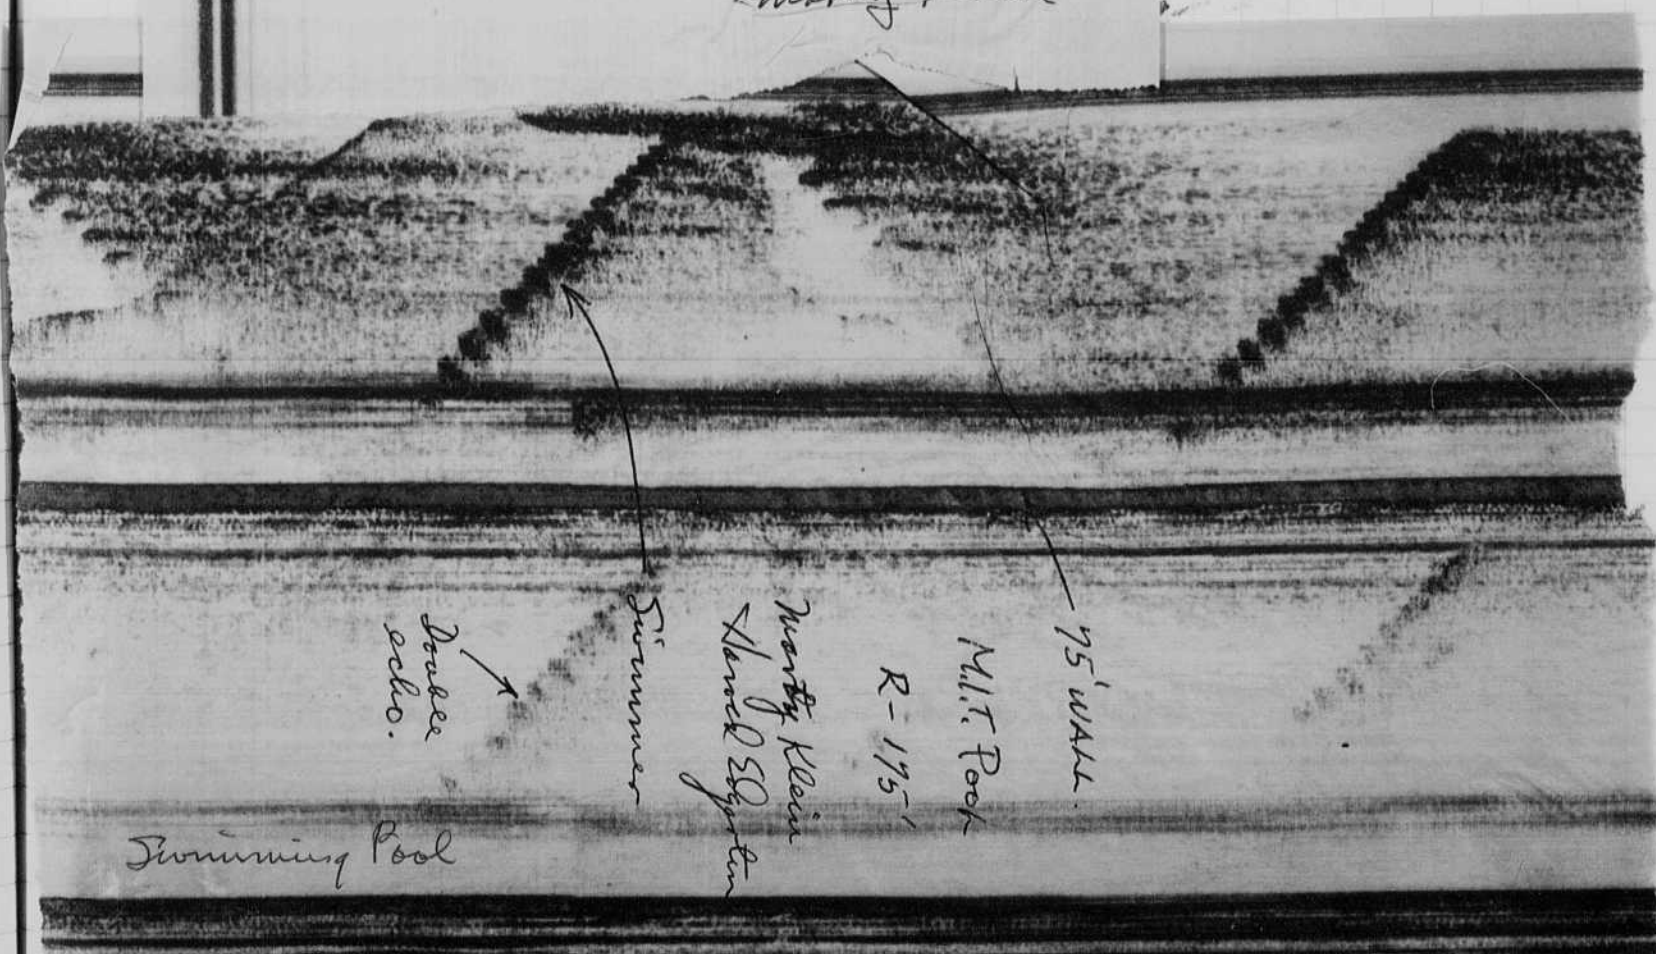 75' WALL.
M.I.T. Pool
R-175'
Marty Klein
Harold Edgerton
Swimmer
Double
echo.
Swimming Pool